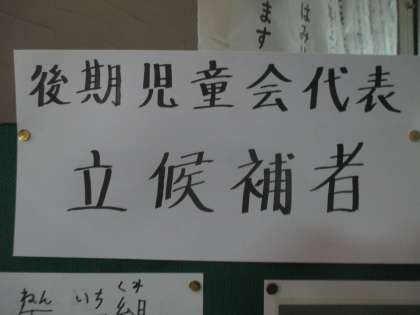 ます
はみ
後期児童会代表
立候補者
ねん いち くみ
組